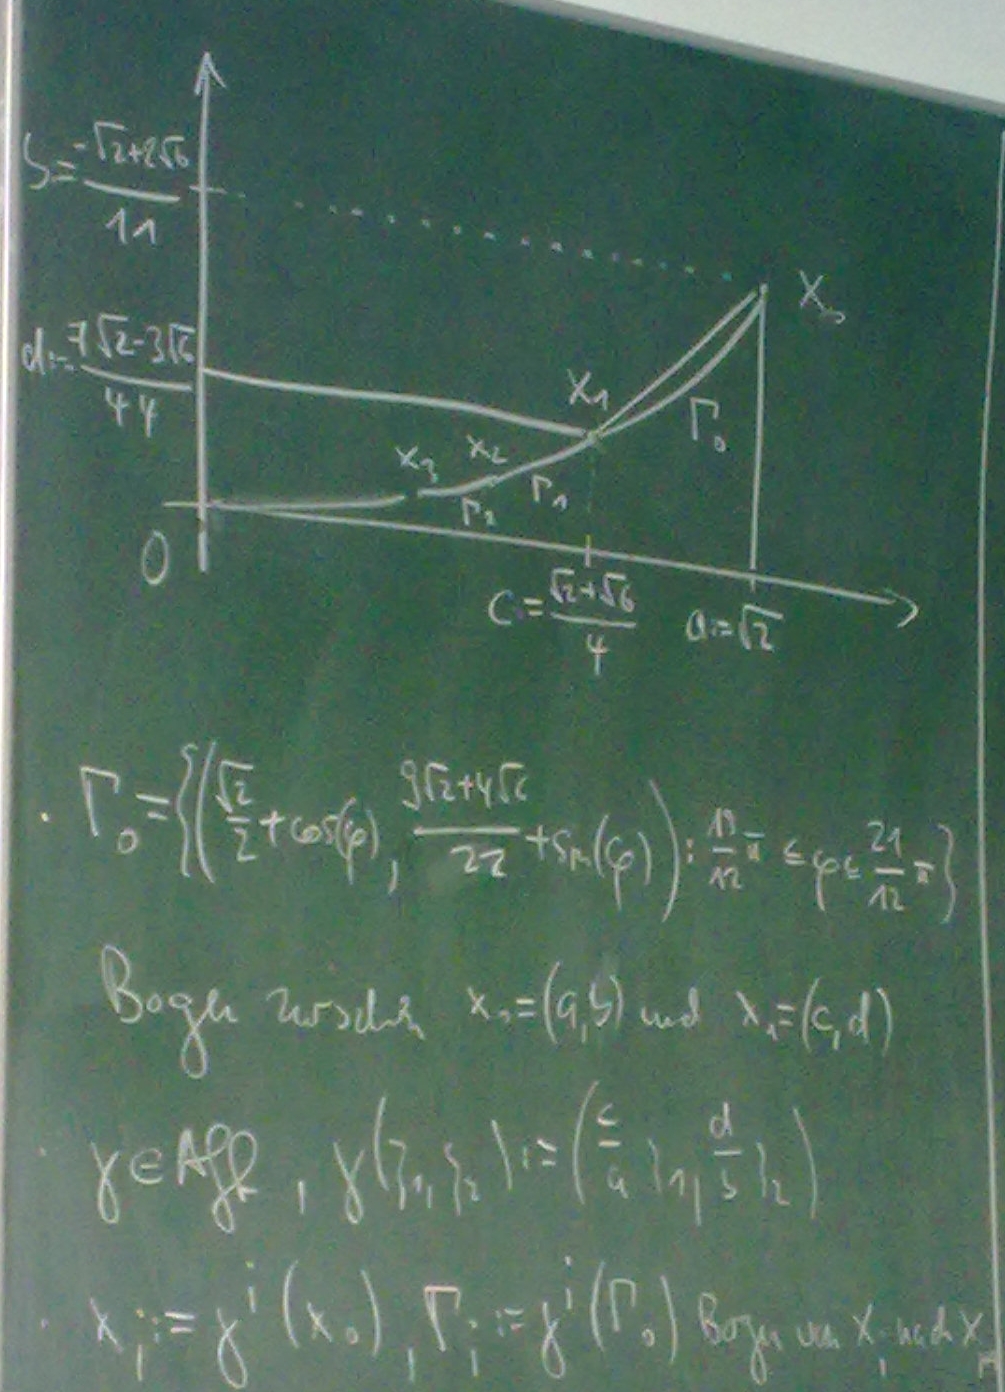 b:=\frac{-√2+2√6}{11}
d:=\frac{7√2-3√6}{44}
X₀
X₁
X₂
X₃
Γ₀
Γ₁
Γ₂
0
c:=\frac{√2+√6}{4}
a:=√2
· Γ₀={(\frac{√2}{2}+cos(φ), \frac{9√2+4√6}{22}+sin(φ)): \frac{19}{12}π ≤ φ ≤ \frac{21}{12}π}
Bogen zwischen x₀=(a,b) und x₁=(c,d)
· γ∈Aff, γ(ξ₁,ξ₂):=(\frac{c}{a}ξ₁,\frac{d}{b}ξ₂)
· x_i:=γ^i(x₀), Γ_i:=γ^i(Γ₀) Bogen von x_i nach x